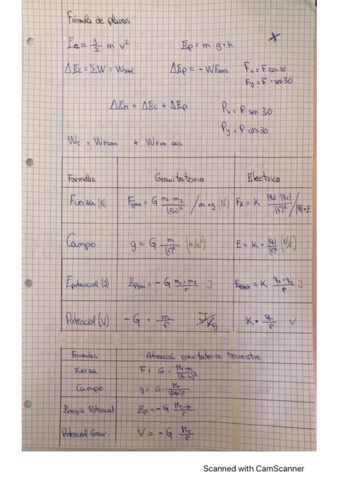 Formula de planos
Ec = 1/2 m v²    Ep = m · g · h
ΔEc = ΣW = Wtotal    ΔEp = - WFcons    Fx = F cos 30
Fy = F · sen 30
ΔEM = ΔEc + ΔEp    Px = P · sen 30
Py = P cos 30
WT = WFcons + WFnon cons
Formulas    Gravitatorio    Electrico
Fuerza (N)    Fgrav = G m1 · m2 / (r)² / m · g (N)    FE = K |q1| |q2| / (r)² / |q| · E
Campo    g = G m / (r)² (m/s²)    E = K · |q| / (r)² (N/C)
Epotencial (J)    Epgrav = - G m1 · m2 / r  J    = K · q1 · q2 / r  J
Potencial (V)    - G · m / r  J/Kg    K · q / r  V
Formulas    Atracción gravitatoria terrestre
Fuerza    F = G ·
Campo    g = G ·
Energia Potencial    Ep = - G MT · m / r
Potencial Grav    V = - G MT / r
Scanned with CamScanner